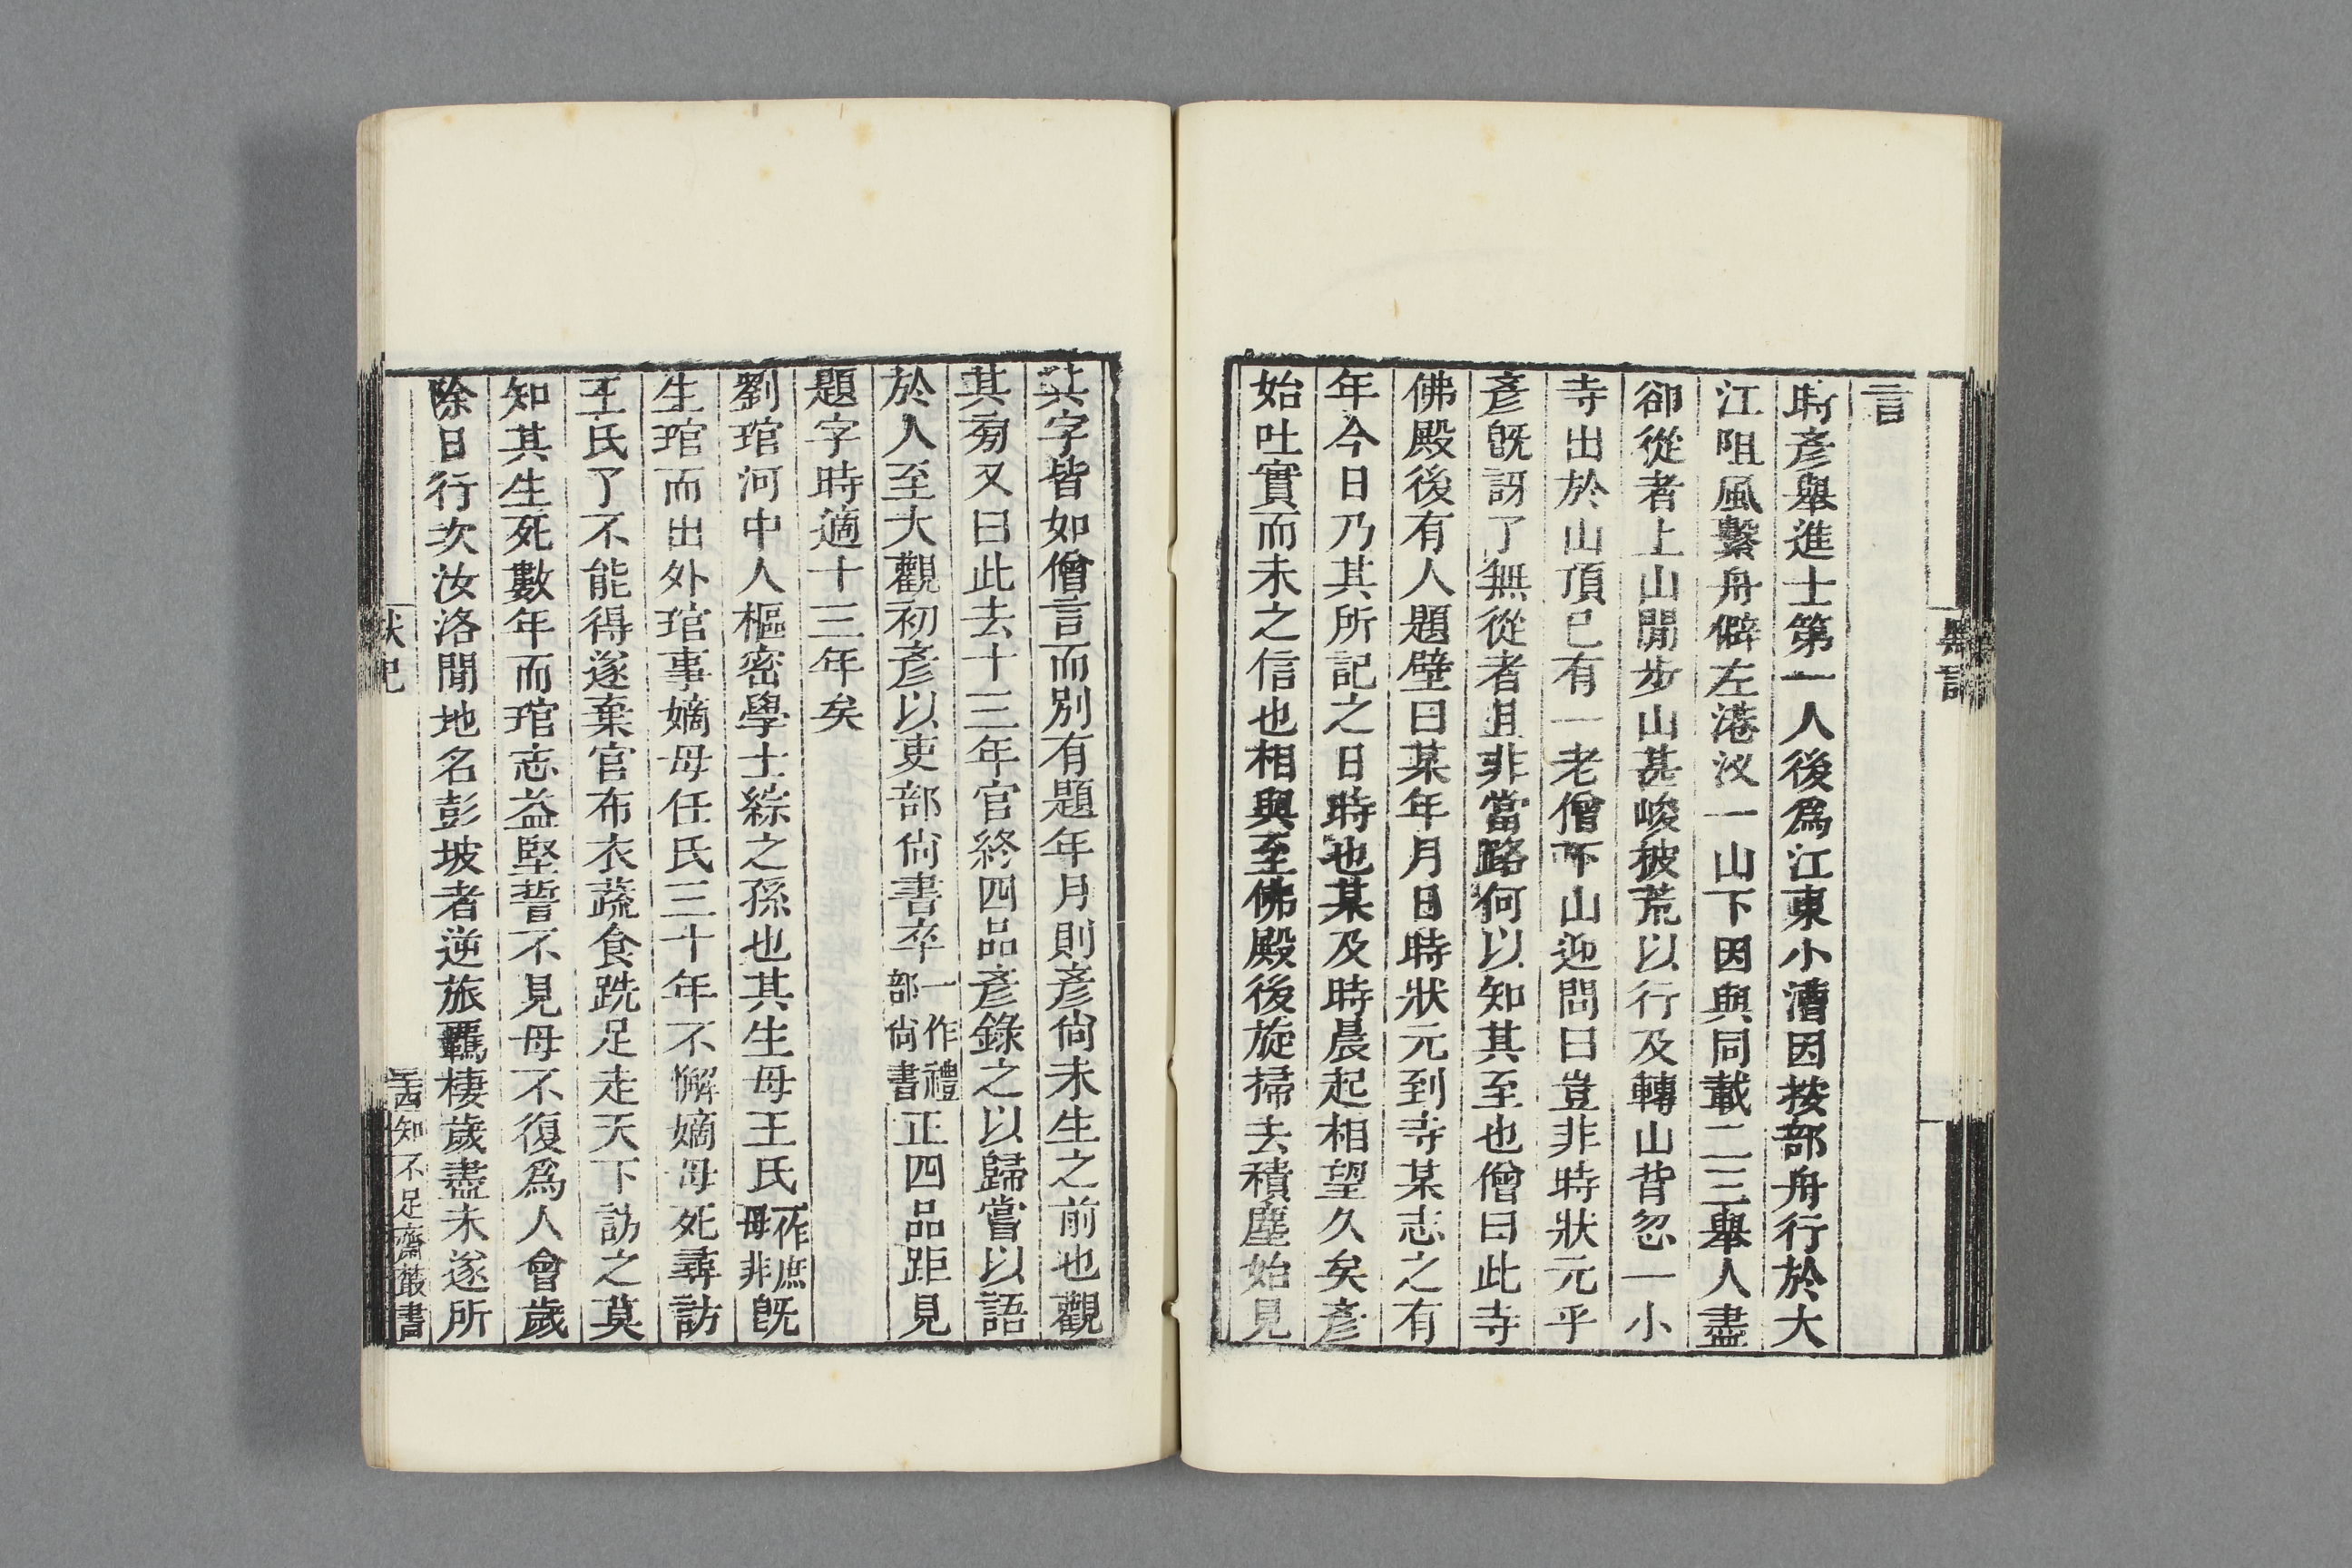 言
時彥舉進士第一人後爲江東小漕因按部舟行於大
江阻風繫舟僻左港汊一山下因與同載二三舉人盡
卻從者上山閒步山甚峻披荒以行及轉山背忽一小
寺出於山頂已有一老僧下山迎問曰豈非時狀元乎
彥旣訝了無從者且非當路何以知其至也僧曰此寺
佛殿後有人題壁曰某年月日時狀元到寺某志之有
年今日乃其所記之日時也某及時晨起相望久矣彥
始吐實而未之信也相與至佛殿後旋掃去積塵始見
其字皆如僧言而別有題年月則彥尙未生之前也觀
其旁又曰此去十三年官終四品彥錄之以歸嘗以語
於人至大觀初彥以吏部尙書卒一作禮部尙書正四品距見
題字時適十三年矣
劉琯河中人樞密學士綜之孫也其生母王氏一作庶母非旣
生琯而出外琯事嫡母任氏三十年不懈嫡母死尋訪
王氏了不能得遂棄官布衣蔬食跣足走天下訪之莫
知其生死數年而琯志益堅誓不見母不復爲人會歲
除日行次汝洛閒地名彭坡者逆旅羈棲歲盡未遂所
知不足齋叢書